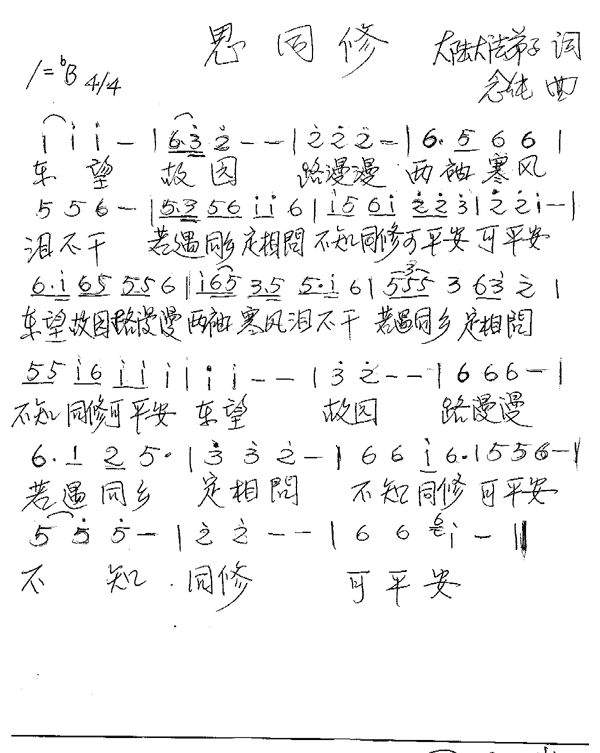 思同修
大陆大法弟子 词
1=ᵇB 4/4
念纯 曲
i̇ i̇ i̇ - | 6·3̇ 2̇ - - | 2̇ 2̇ 2̇ - | 6· 5 6 6 |
东 望 故 园 路漫漫 两袖寒风
5 5 6 - | 5·3 56 i̇i̇ 6 | i̇5 6i̇ 2̇2̇ 3̇ | 2̇ 2̇ i̇ - |
泪不干 若遇同乡定相問 不知同修可平安 可平安
6·i̇ 65 556 | i̇65 3·5 5·i̇ 6 | 555 3 63̇ 2̇ |
东望故园路漫漫 两袖寒风泪不干 若遇同乡定相問
55 i̇6 i̇i̇ i̇ | i̇ i̇ - - | 3̇ 2̇ - - | 6 66 - |
不知同修可平安 东望 故园 路漫漫
6· 1 2 5· | 3̇ 3̇ 2̇ - | 6 6 i̇ 6· | 5 5 6 - |
若遇同乡 定相問 不知同修可平安
5 5̇ 5̇ - | 2̇ 2̇ - - | 6 6 i̇ - ‖
不 知 同修 可平安